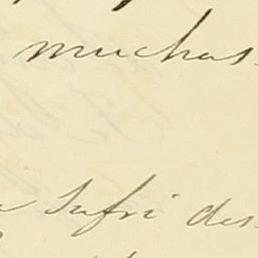 muchas
sufri des